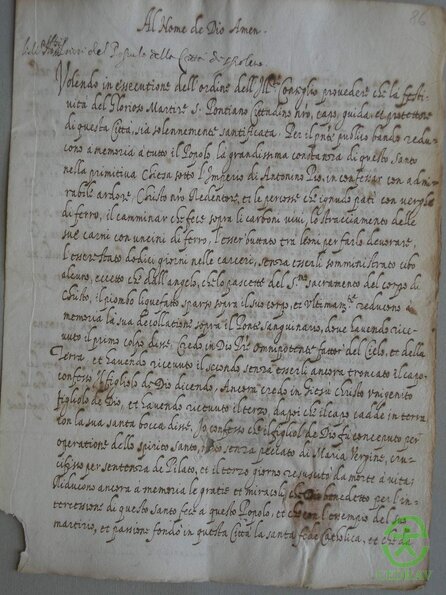 86
Al Nome de Dio Amen.
del Popolo della Città di Spoleto
Volendo in essecutione dell'ordine dell'Ill.re Conseglio provedere che la festi-
vità del Glorioso Martire S. Pontiano Cittadino nr̃o, caro, guida, et protettore
di questa Città, sia solennemente santificata. Per il pñte publico bando redu-
cono a memoria a tutto il Popolo la grandissima constanza di questo Santo
nella primitiva Chiesa sotto l'Imperio di Antonino Pio, in confessar con admi-
rabil' ardore, Christo nr̃o Redentore, et le percosse che ignudo patì con verghe
di ferro, il camminar che fece sopra li carboni vivi, lo stracciamento delle
sue carni con uncini di ferro, l'esser buttato tra leoni per farlo devorare,
l'esser stato dodici giorni nelle carcere, senza esserli somministrato cibo
alcuno, eccetto che dall'angelo, che lo pascette del S.mo sacramento del corpo di
Christo, il piombo liquefatto sparso sopra il suo corpo, et ultimam.te reducono a
memoria la sua decollatione sopra il Ponte Sanguinario, dove havendo rice-
vuto il primo colpo disse, Credo in Dio Pr̃e Omnipotente fattor del Cielo, et della
Terra, et havendo ricevuto il secondo senza esserli ancora troncato il capo
confessò il figliolo de Dio dicendo, Ancora credo in Giesù Christo unigenito
figliolo de Dio, et havendo ricevuto il terzo, dapoi che il capo cadde in terra
con la sua santa bocca disse, Io confesso che il figliol de Dio fu concetto per
operatione dello Spirito Santo, nato senza peccato di Maria Vergine, cru-
cifisso per sentenza de Pilato, et il terzo giorno resuscitò da morte a vita;
Riducono ancora a memoria le gratie et miracoli che Dio benedetto per l'in-
tercessione di questo santo fece a questo Popolo, et che con l'esempio del suo
martirio, et passione fondò in questa Città la santa fede Catholica, et che da
CEDRAV